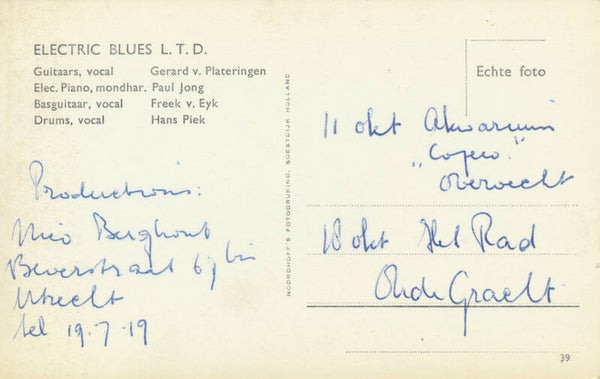 ELECTRIC BLUES L. T. D.
Guitaars, vocal Gerard v. Plateringen
Elec. Piano, mondhar. Paul Jong
Basguitaar, vocal Freek v. Eyk
Drums, vocal Hans Piek
Productions:
Nico Berghout
Beverstraat 67 bis
Utrecht
tel 19.7.19
NOORDHOFF'S FOTODRUKIND. SOESTDIJK HOLLAND
Echte foto
11 okt Akwarium
Overvecht
18 okt Het Rad
Oude Gracht
39